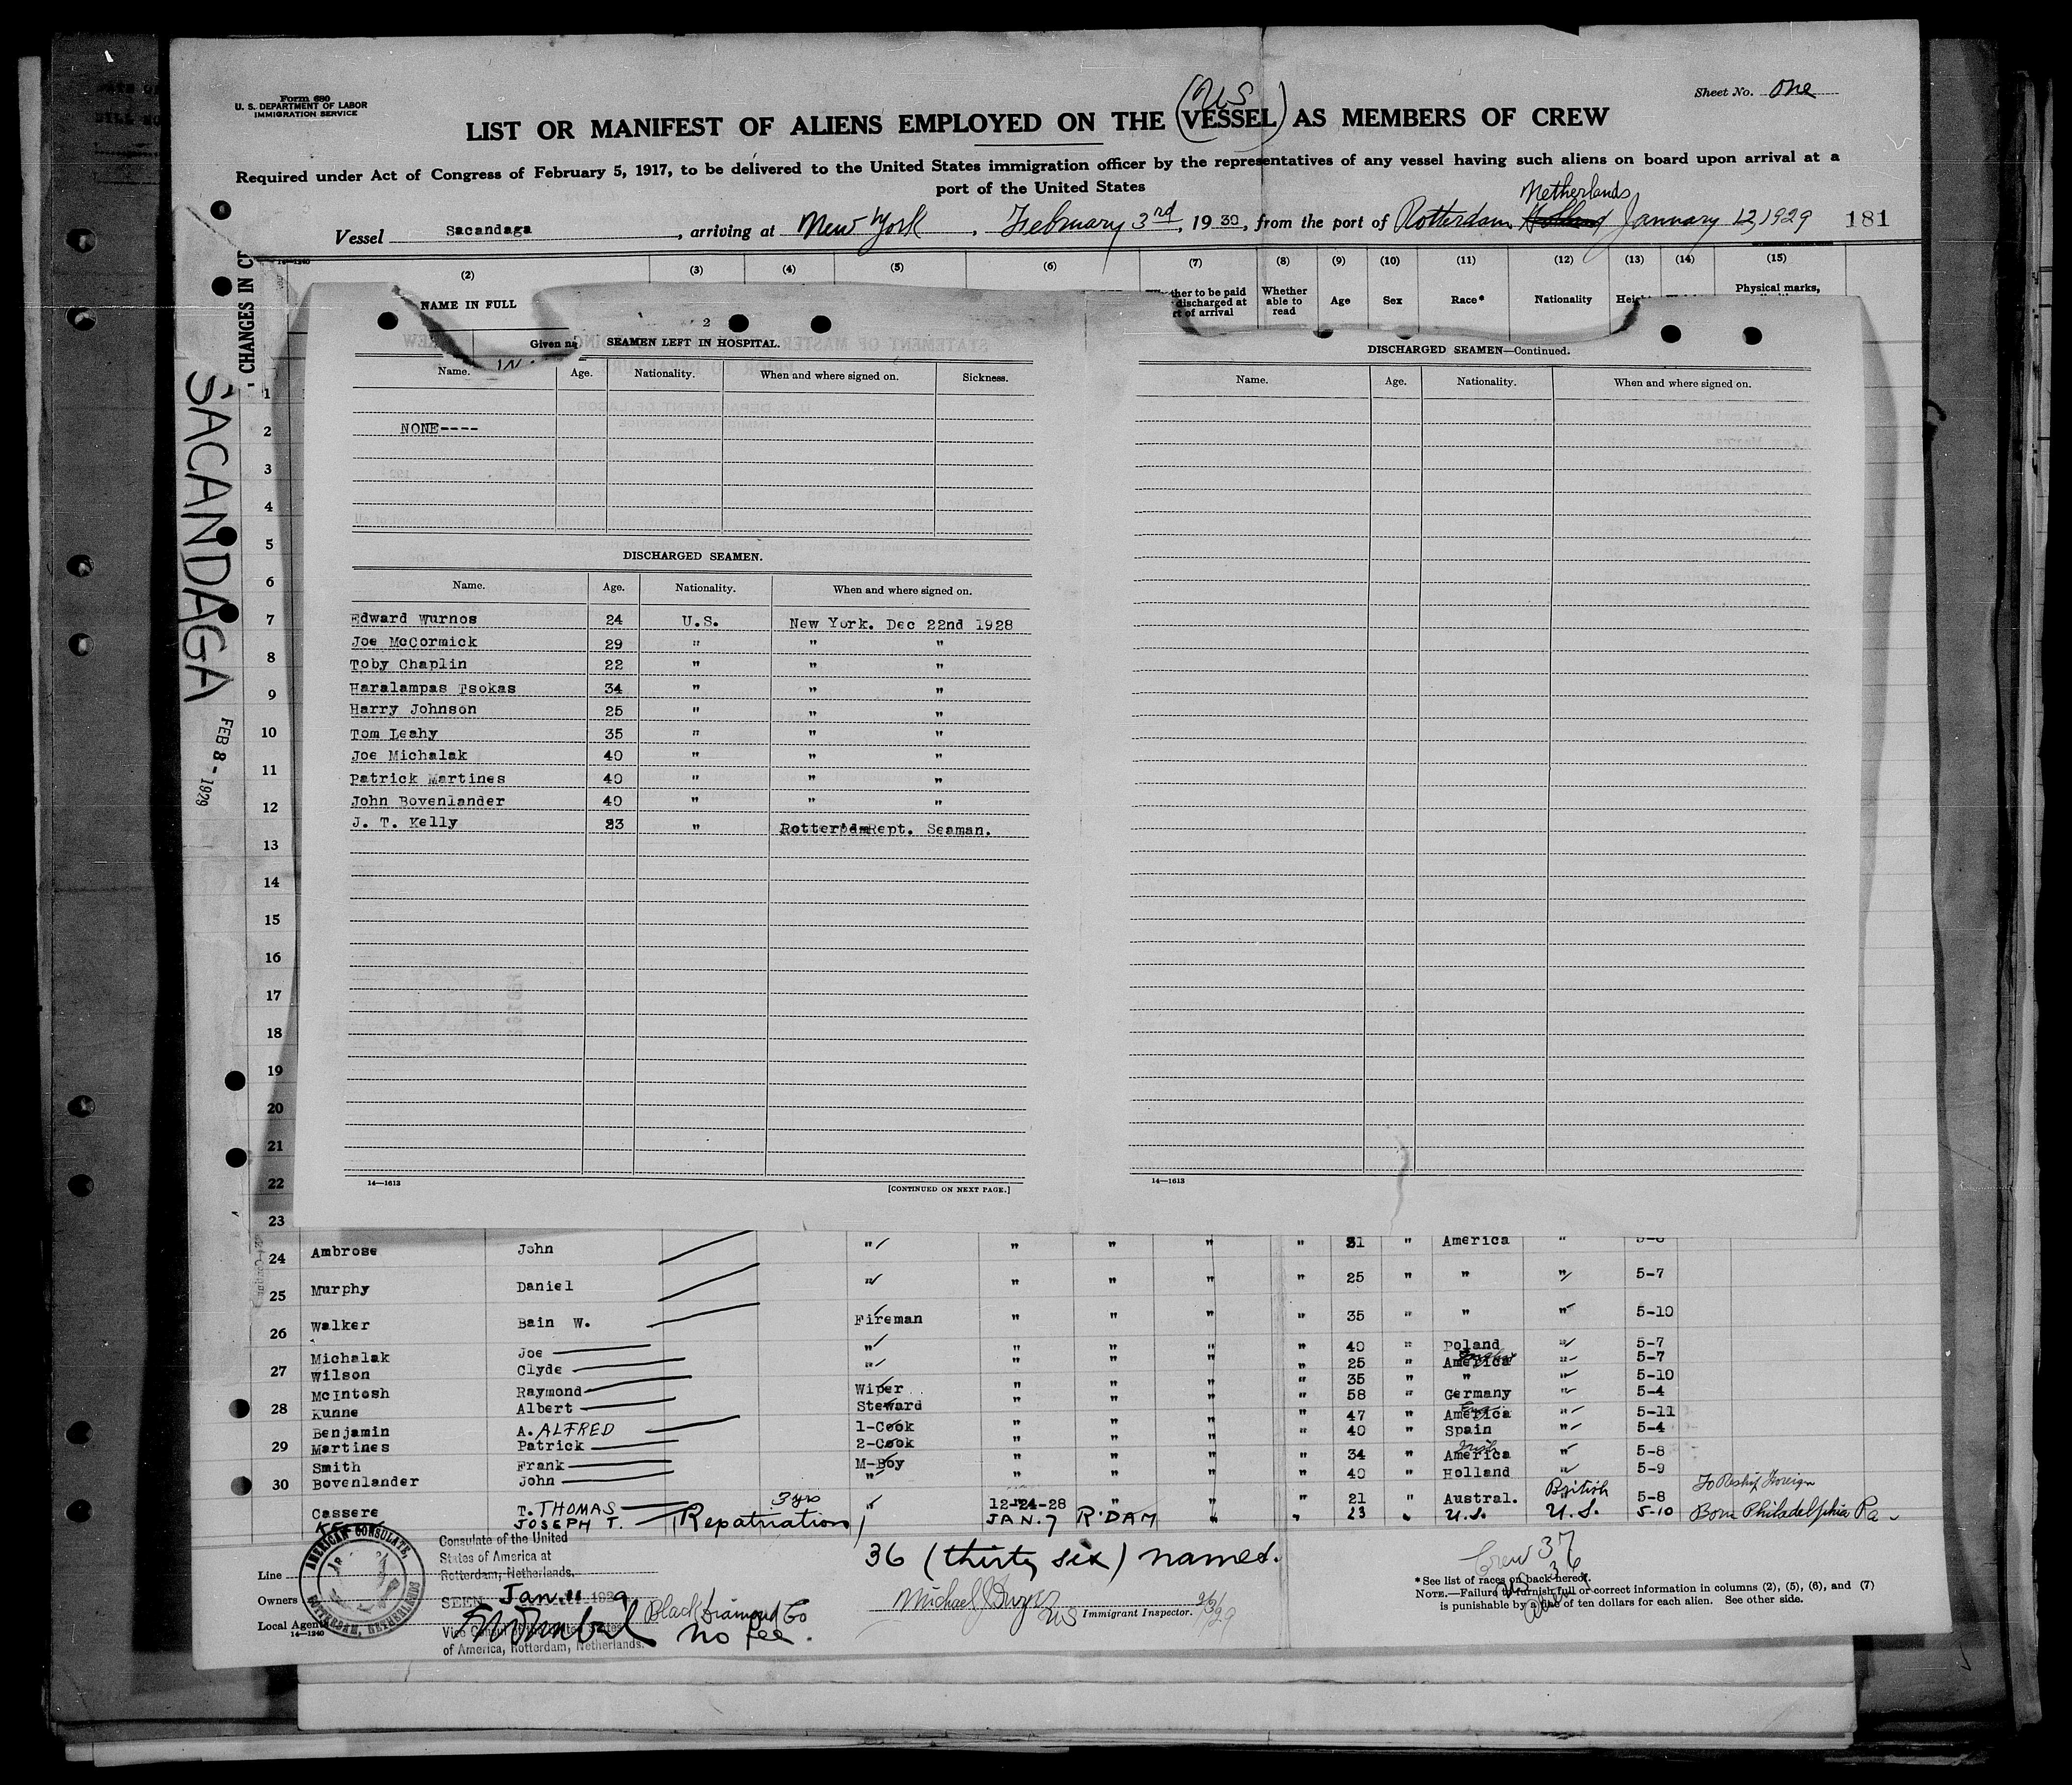 Form 680
U. S. DEPARTMENT OF LABOR
IMMIGRATION SERVICE
Sheet No. One
(US
LIST OR MANIFEST OF ALIENS EMPLOYED ON THE (VESSEL) AS MEMBERS OF CREW
Required under Act of Congress of February 5, 1917, to be delivered to the United States immigration officer by the representatives of any vessel having such aliens on board upon arrival at a
port of the United States
Netherlands
Vessel Sacandaga, arriving at New York, February 3rd, 1930, from the port of Rotterdam Holland January 12, 1929 181
CHANGES IN
SACANDAGA
FEB 8 - 1929
14—1240
(2) (3) (4) (5) (6) (7) (8) (9) (10) (11) (12) (13) (14) (15)
NAME IN FULL
to be paid
discharged at
of arrival
Whether
able to
read
Age Sex Race* Nationality
Physical marks,
Given
2
SEAMEN LEFT IN HOSPITAL.
Name. Age. Nationality. When and where signed on. Sickness.
NONE----
DISCHARGED SEAMEN.
Name. Age. Nationality. When and where signed on.
Edward Wurnos 24 U.S. New York. Dec 22nd 1928
Joe McCormick 29 " " "
Toby Chaplin 22 " " "
Haralampas Tsokas 34 " " "
Harry Johnson 25 " " "
Tom Leahy 35 " " "
Joe Michalak 40 " " "
Patrick Martines 40 " " "
John Bovenlander 40 " " "
J. T. Kelly 23 " Rotter'dm Rept. Seaman.
14—1613 [CONTINUED ON NEXT PAGE.]
DISCHARGED SEAMEN—Continued.
Name. Age. Nationality. When and where signed on.
14—1613
1
2
3
4
5
6
7
8
9
10
11
12
13
14
15
16
17
18
19
20
21
22
23
24 Ambrose John " " " " " 31 " America "
25 Murphy Daniel " " " " " 25 " " " 5-7
26 Walker Bain W. Fireman " " " " 35 " " " 5-10
Michalak Joe " " " " " 40 " Poland " 5-7
27 Wilson Clyde " " " " " 25 " America " 5-7
McIntosh Raymond Wiper " " " " 35 " " " 5-10
28 Kunne Albert Steward " " " " 58 " Germany " 5-4
Benjamin A. ALFRED 1-Cook " " " " 47 " America Eng " 5-11
29 Martines Patrick 2-Cook " " " " 40 " Spain " 5-4
Smith Frank M-Boy " " " " 34 " America Irish " 5-8
30 Bovenlander John " " " " " 40 " Holland " 5-9
Cassere T. THOMAS 3 yrs " 12-24-28 " " " 21 " Austral. British 5-8 To Reship Foreign
JOSEPH T. (Repatriation) JAN. 7 R'DAM " " 23 " U.S. U.S. 5-10 Born Philadelphia Pa
36 (thirty six) names.
Crew 37
US 36
Line
Owners
Local Agents
14—1240
AMERICAN CONSULATE,
ROTTERDAM, NETHERLANDS
Consulate of the United
States of America at
Rotterdam, Netherlands.
SEEN Jan. 11 1929
Vice Consul
of America, Rotterdam, Netherlands.
Black Diamond Co
No fee.
US Immigrant Inspector.
* See list of races on back hereof.
NOTE.—Failure to furnish full or correct information in columns (2), (5), (6), and (7)
is punishable by a fine of ten dollars for each alien. See other side.